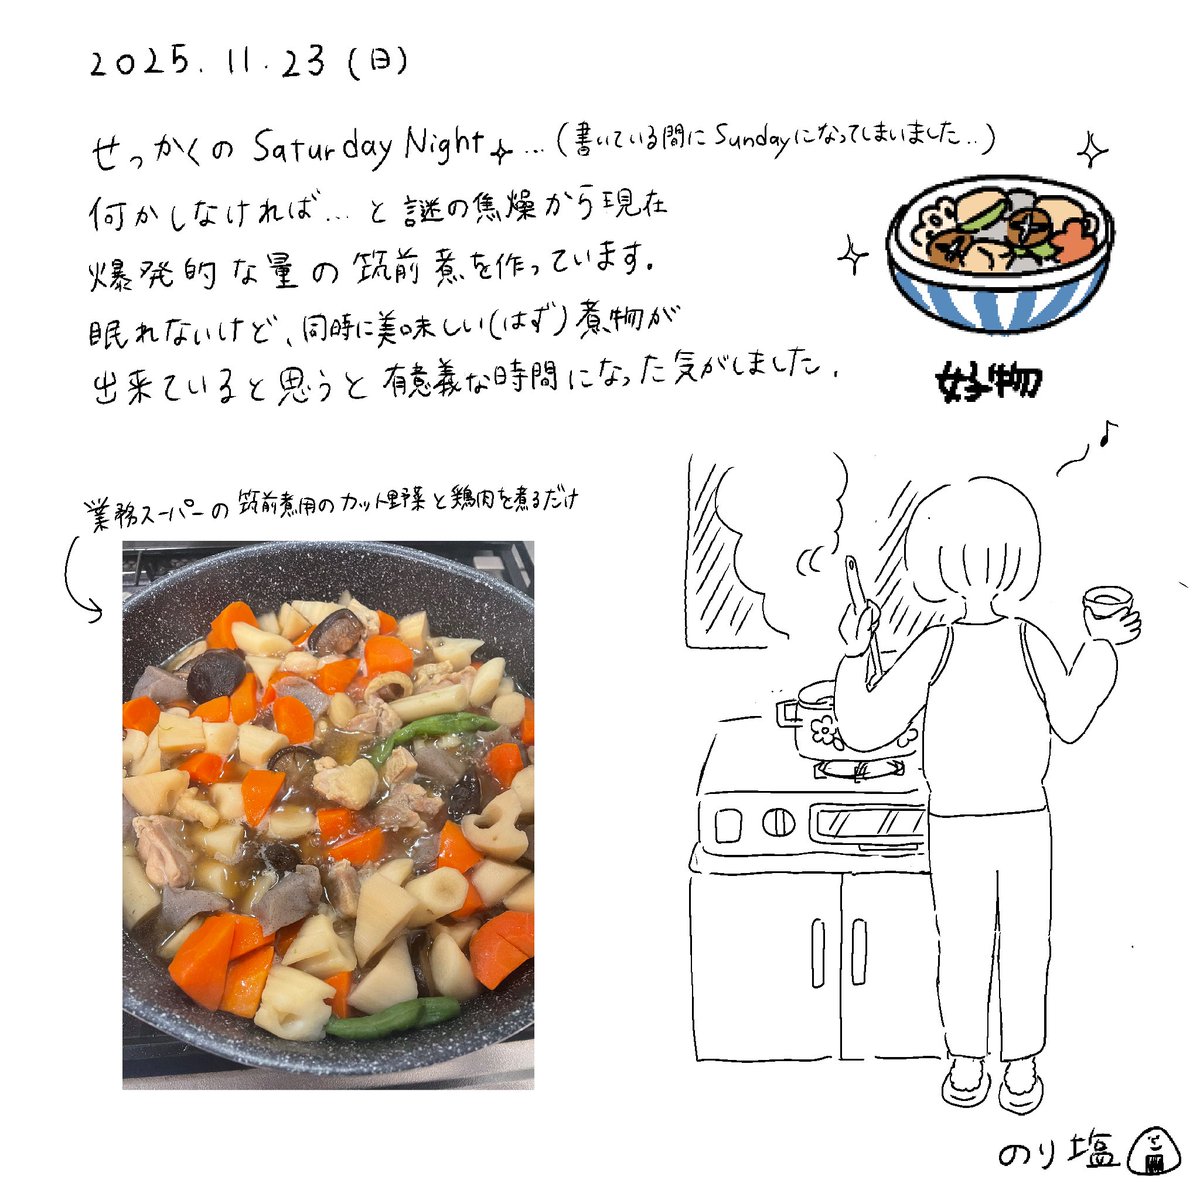 2025.11.23(日)
せっかくの Saturday Night…(書いている間にSundayになってしまいました…)
何かしなければ…と謎の焦燥から現在
爆発的な量の筑前煮を作っています.
眠れないけど、同時に美味しい(はず)煮物が
出来ていると思うと有意義な時間になった気がしました.
好物
業務スーパーの筑前煮用のカット野菜と鶏肉を煮るだけ
のり塩